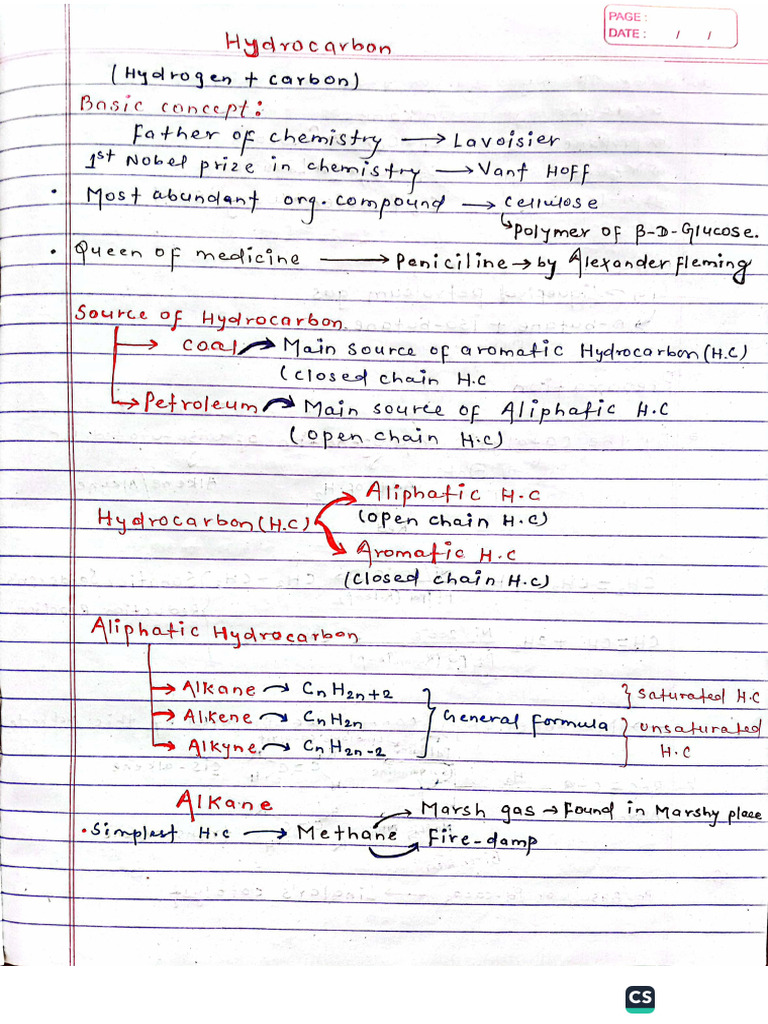 PAGE :
DATE : / /
Hydrocarbon
(Hydrogen + carbon)
Basic concept:
Father of chemistry → Lavoisier
1st Nobel prize in chemistry → Vant HOFF
• Most abundant org. compound → cellulose
↳ Polymer of β-D-Glucose.
• Queen of medicine → Peniciline → by Alexander Fleming
Source of Hydrocarbon.
→ coal → Main source of aromatic Hydrocarbon (H.C)
(closed chain H.C
→ Petroleum → Main source of Aliphatic H.C
(open chain H.C)
Aliphatic H.C
(open chain H.C)
Hydrocarbon (H.C)
Aromatic H.C
(closed chain H.C)
Aliphatic Hydrocarbon
→ Alkane → CnH2n+2 } saturated H.C
→ Alkene → CnH2n } General formula } unsaturated
→ Alkyne → CnH2n-2 H.C
Alkane
Marsh gas → Found in Marshy place
• Simplest H.C → Methane Fire-damp
CS